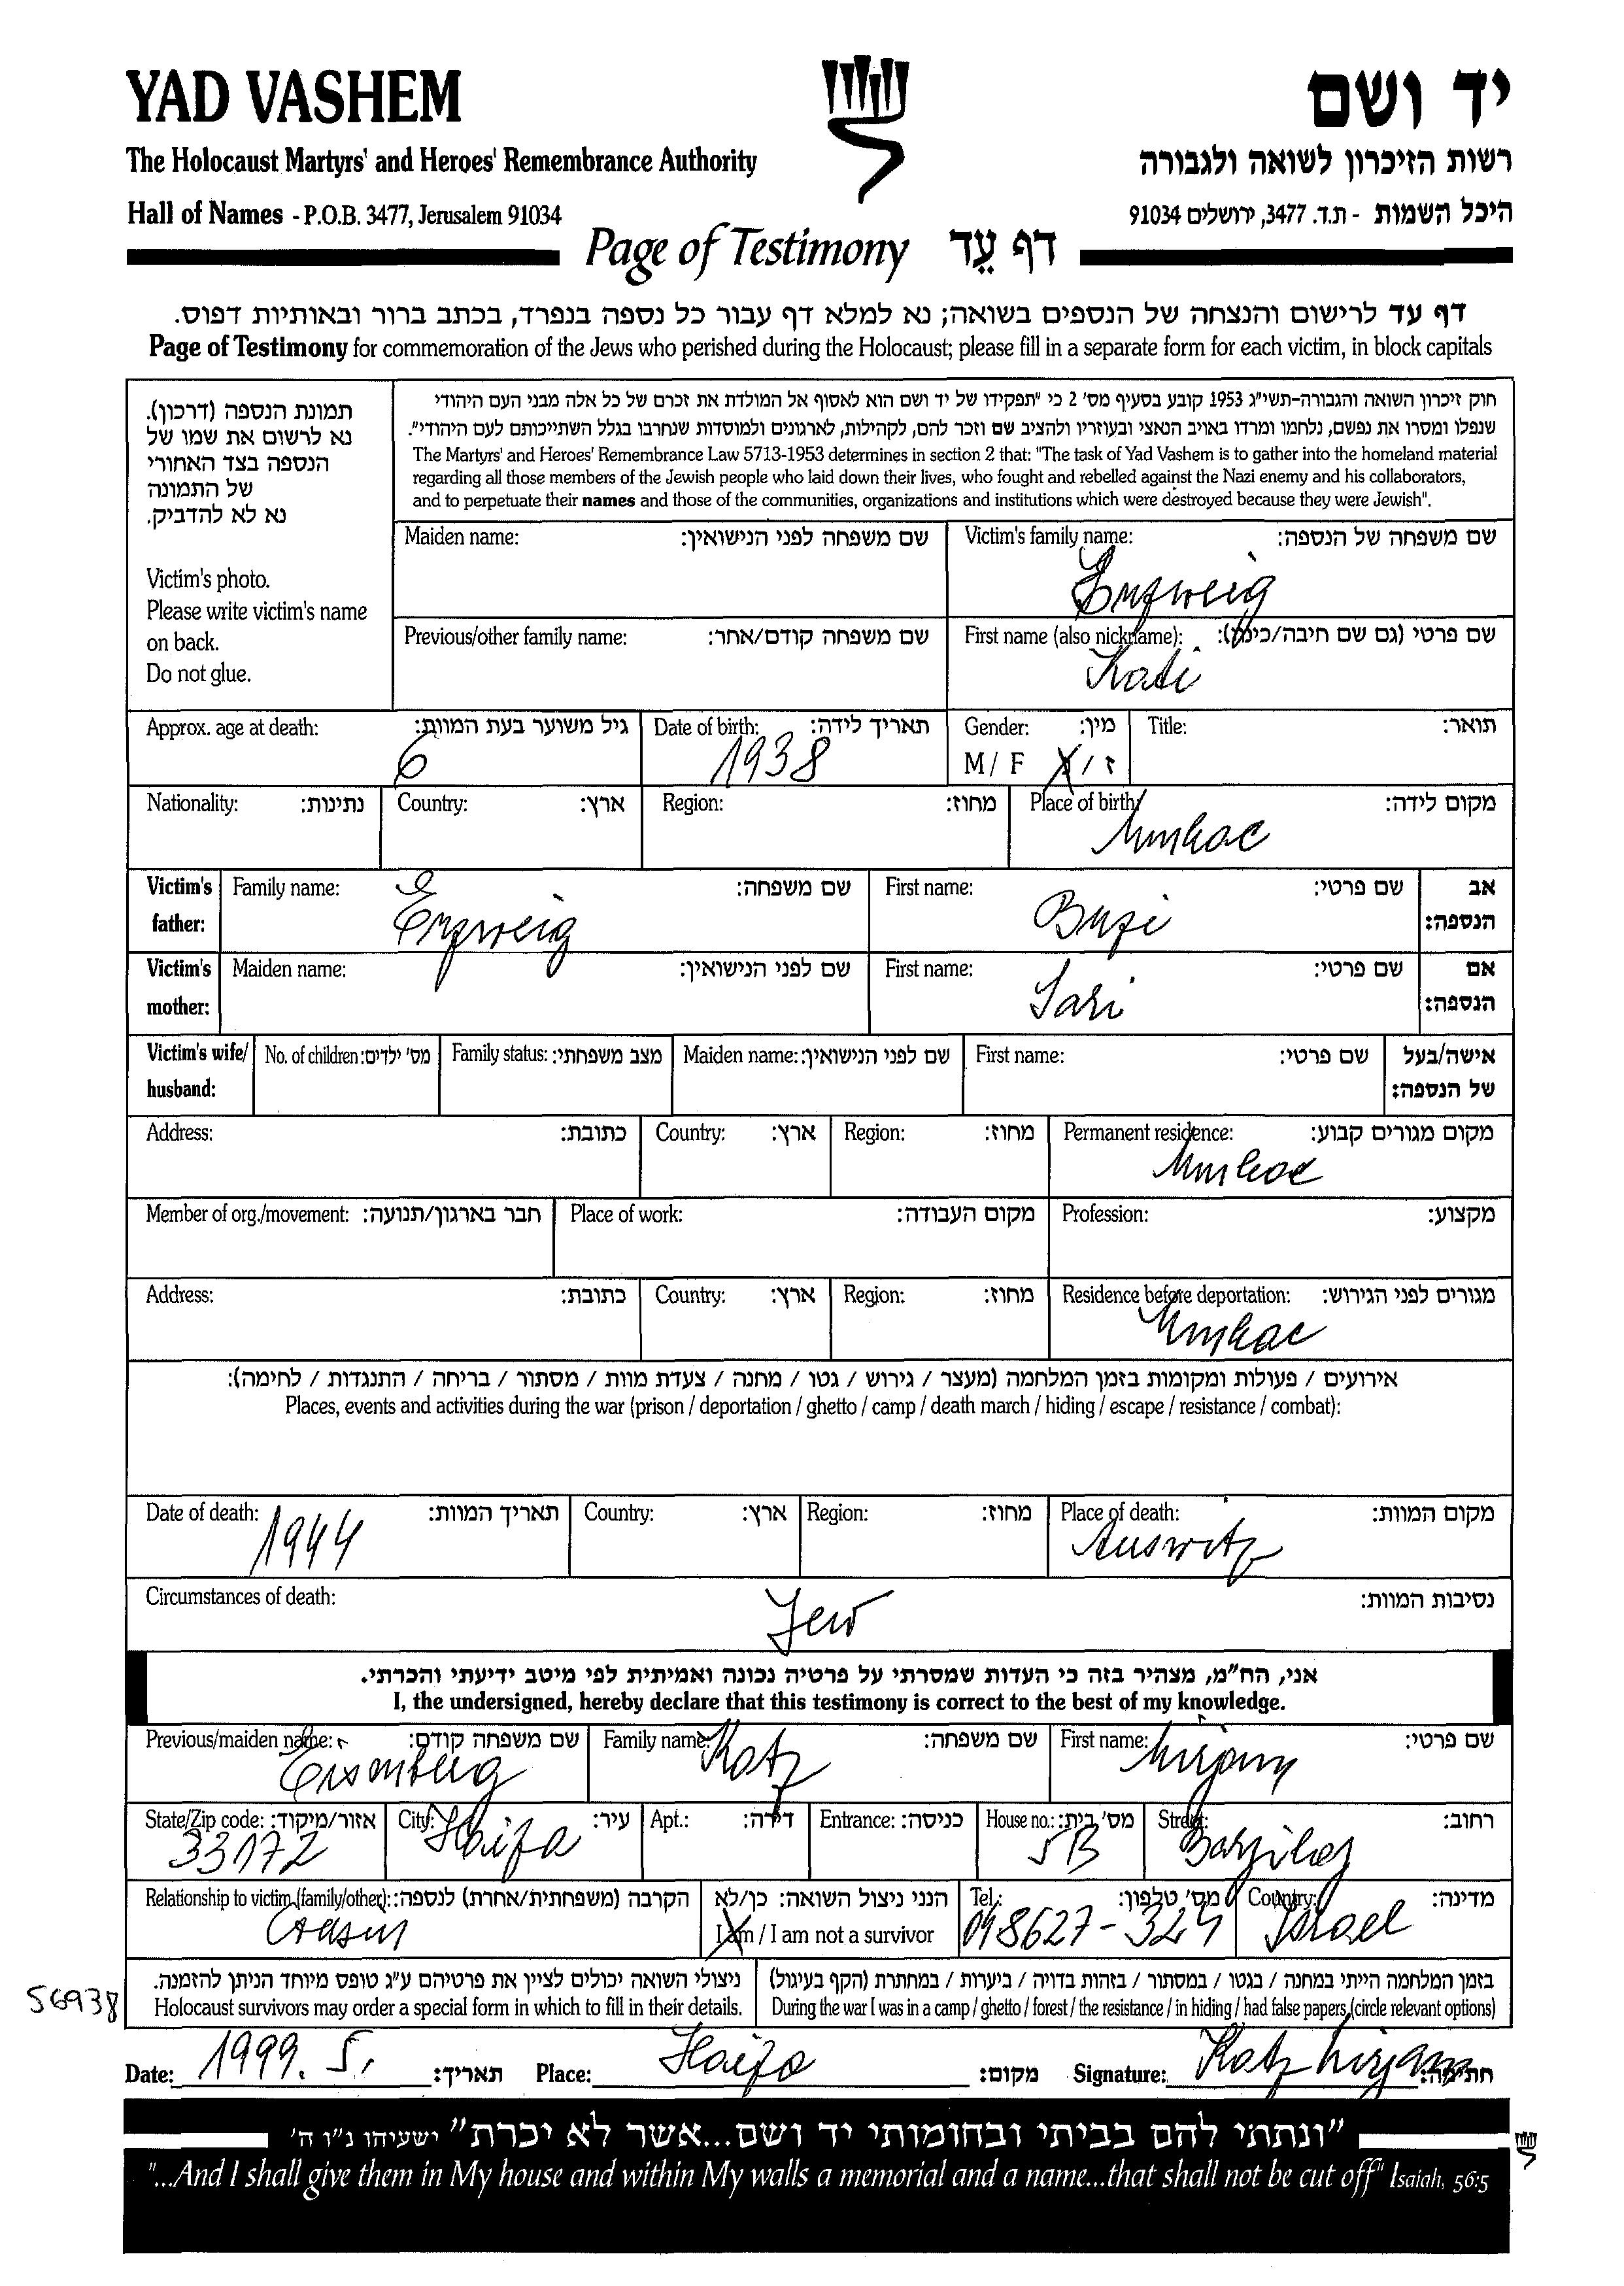 YAD VASHEM
יד ושם
The Holocaust Martyrs' and Heroes' Remembrance Authority
רשות הזיכרון לשואה ולגבורה
Hall of Names - P.O.B. 3477, Jerusalem 91034
היכל השמות - ת.ד. 3477, ירושלים 91034
Page of Testimony דף עֵד
דף עד לרישום והנצחה של הנספים בשואה; נא למלא דף עבור כל נספה בנפרד, בכתב ברור ובאותיות דפוס.
Page of Testimony for commemoration of the Jews who perished during the Holocaust; please fill in a separate form for each victim, in block capitals
תמונת הנספה (דרכון).
נא לרשום את שמו של
הנספה בצד האחורי
של התמונה
נא לא להדביק.
Victim's photo.
Please write victim's name
on back.
Do not glue.
חוק זיכרון השואה והגבורה-תשי"ג 1953 קובע בסעיף מס' 2 כי "תפקידו של יד ושם הוא לאסוף אל המולדת את זכרם של כל אלה מבני העם היהודי
שנפלו ומסרו את נפשם, נלחמו ומרדו באויב הנאצי ובעוזריו ולהציב שם וזכר להם, לקהילות, לארגונים ולמוסדות שנחרבו בגלל השתייכותם לעם היהודי".
The Martyrs' and Heroes' Remembrance Law 5713-1953 determines in section 2 that: "The task of Yad Vashem is to gather into the homeland material
regarding all those members of the Jewish people who laid down their lives, who fought and rebelled against the Nazi enemy and his collaborators,
and to perpetuate their names and those of the communities, organizations and institutions which were destroyed because they were Jewish".
Maiden name: שם משפחה לפני הנישואין:
Victim's family name: שם משפחה של הנספה:
Previous/other family name: שם משפחה קודם/אחר:
First name (also nickname): שם פרטי (גם שם חיבה/כינוי):
Kati
Approx. age at death: גיל משוער בעת המוות:
6
Date of birth: תאריך לידה:
1938
Gender: מין:
M / F ז / נ
Title: תואר:
Nationality: נתינות:
Country: ארץ:
Region: מחוז:
Place of birth: מקום לידה:
Munkac
Victim's father: Family name: שם משפחה:
First name: שם פרטי: אב הנספה:
Victim's mother: Maiden name: שם לפני הנישואין:
First name: שם פרטי: אם הנספה:
Sari
Victim's wife/ husband: No. of children: מס' ילדים: Family status: מצב משפחתי: Maiden name: שם לפני הנישואין: First name: שם פרטי: אישה/בעל של הנספה:
Address: כתובת: Country: ארץ: Region: מחוז: Permanent residence: מקום מגורים קבוע:
Munkac
Member of org./movement: חבר בארגון/תנועה: Place of work: מקום העבודה: Profession: מקצוע:
Address: כתובת: Country: ארץ: Region: מחוז: Residence before deportation: מגורים לפני הגירוש:
Munkac
אירועים / פעולות ומקומות בזמן המלחמה (מעצר / גירוש / גטו / מחנה / צעדת מוות / מסתור / בריחה / התנגדות / לחימה):
Places, events and activities during the war (prison / deportation / ghetto / camp / death march / hiding / escape / resistance / combat):
Date of death: תאריך המוות: Country: ארץ: Region: מחוז: Place of death: מקום המוות:
1944 Auswitz
Circumstances of death: נסיבות המוות:
Jew
אני, הח"מ, מצהיר בזה כי העדות שמסרתי על פרטיה נכונה ואמיתית לפי מיטב ידיעתי והכרתי.
I, the undersigned, hereby declare that this testimony is correct to the best of my knowledge.
Previous/maiden name: שם משפחה קודם: Family name: שם משפחה: First name: שם פרטי:
Katz Mirjam
State/Zip code: אזור/מיקוד: City: עיר: Apt.: דירה: Entrance: כניסה: House no.: מס' בית: Street: רחוב:
33172 Haifa 5B Barzilaj
Relationship to victim (family/other): הקרבה (משפחתית/אחרת) לנספה: הנני ניצול השואה: כן/לא Tel.: מס' טלפון: Country: מדינה:
I am / I am not a survivor 048627-324 Israel
ניצולי השואה יכולים לציין את פרטיהם ע"ג טופס מיוחד הניתן להזמנה.
Holocaust survivors may order a special form in which to fill in their details.
בזמן המלחמה הייתי במחנה / בגטו / במסתור / בזהות בדויה / ביערות / במחתרת (הקף בעיגול)
During the war I was in a camp / ghetto / forest / the resistance / in hiding / had false papers (circle relevant options)
56938
Date: 1999. 5. תאריך: Place: Haifa מקום: Signature: Katz Mirjam חתימה:
"ונתתי להם בביתי ובחומותי יד ושם...אשר לא יכרת" ישעיהו נ"ו ה'
"...And I shall give them in My house and within My walls a memorial and a name...that shall not be cut off" Isaiah, 56:5